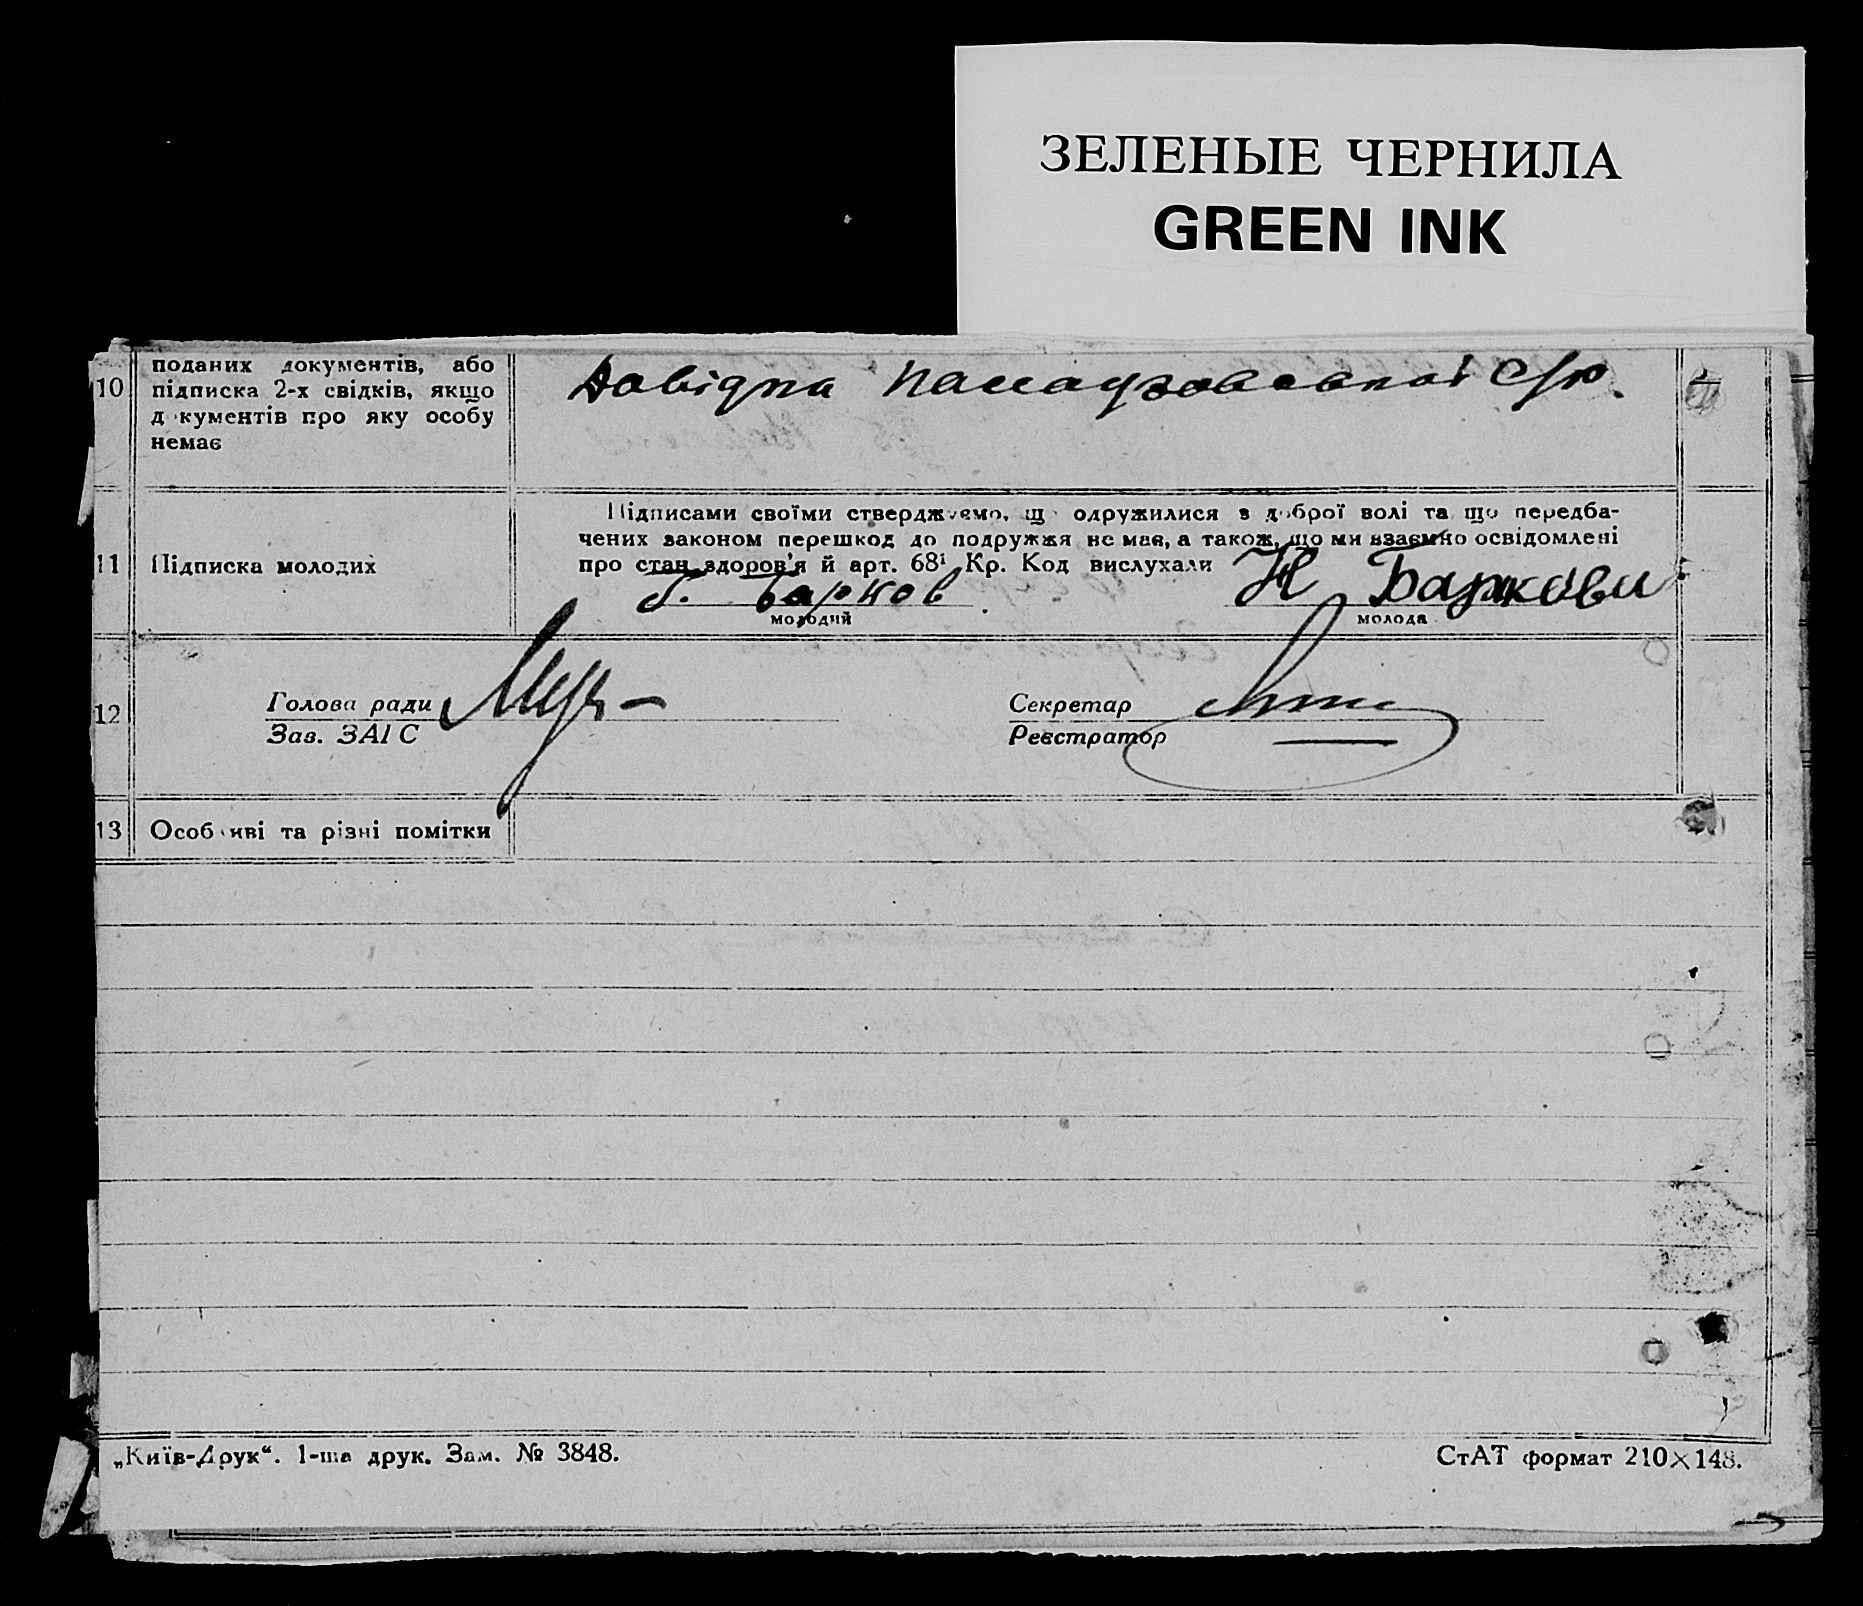 ЗЕЛЕНЫЕ ЧЕРНИЛА
GREEN INK
10
поданих документів, або
підписка 2-х свідків, якщо
документів про яку особу
немає
Довідка с/р.
11
Підписка молодих
Підписами своїми стверджуємо, що одружилися з доброї волі та що передба-
чених законом перешкод до подружжя не має, а також, що ми взаємно освідомлені
про стан здоров'я й арт. 68¹ Кр. Код вислухали
Барков
Н Баркова
молодий
молода
12
Голова ради
Зав. ЗАГС
Секретар
Реєстратор
13
Особливі та різні помітки
„Київ-Друк“. 1-ша друк. Зам. № 3848.
СтАТ формат 210×148.